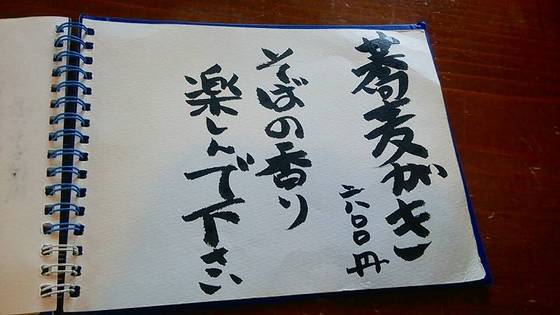 蕎麦がき
六〇〇円
そばの香り
楽しんで下さい